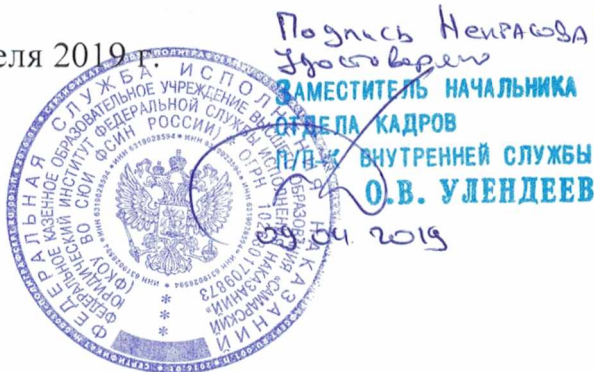 еля 2019 г.
Подпись Некрасова
Удостоверяю
ЗАМЕСТИТЕЛЬ НАЧАЛЬНИКА
ОТДЕЛА КАДРОВ
П/П-К ВНУТРЕННЕЙ СЛУЖБЫ
О.В. УЛЕНДЕЕВ
09.04.2019
ФЕДЕРАЛЬНАЯ СЛУЖБА ИСПОЛНЕНИЯ НАКАЗАНИЙ
ФЕДЕРАЛЬНОЕ КАЗЕННОЕ ОБРАЗОВАТЕЛЬНОЕ УЧРЕЖДЕНИЕ ВЫСШЕГО ОБРАЗОВАНИЯ «САМАРСКИЙ
ЮРИДИЧЕСКИЙ ИНСТИТУТ ФЕДЕРАЛЬНОЙ СЛУЖБЫ ИСПОЛНЕНИЯ НАКАЗАНИЙ»
(ФКОУ ВО СЮИ ФСИН РОССИИ) * ОГРН
* ИНН 6319028594 * ИНН 6319028594 *
* * *